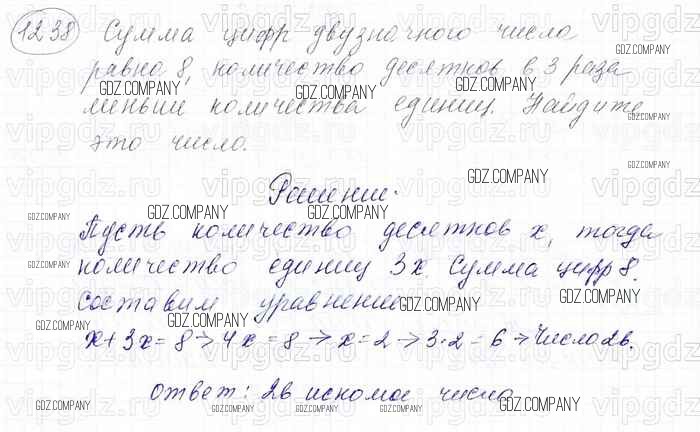 12.38 Сумма цифр двузначного числа
равна 8, количество десятков в 3 раза
меньше количества единиц. Найдите
это число.
Решение.
Пусть количество десятков x, тогда
количество единиц 3x. Сумма цифр 8.
Составим уравнение
x+3x=8 → 4x=8 → x=2 → 3·2=6 → Число 26.
Ответ: 26 искомое число